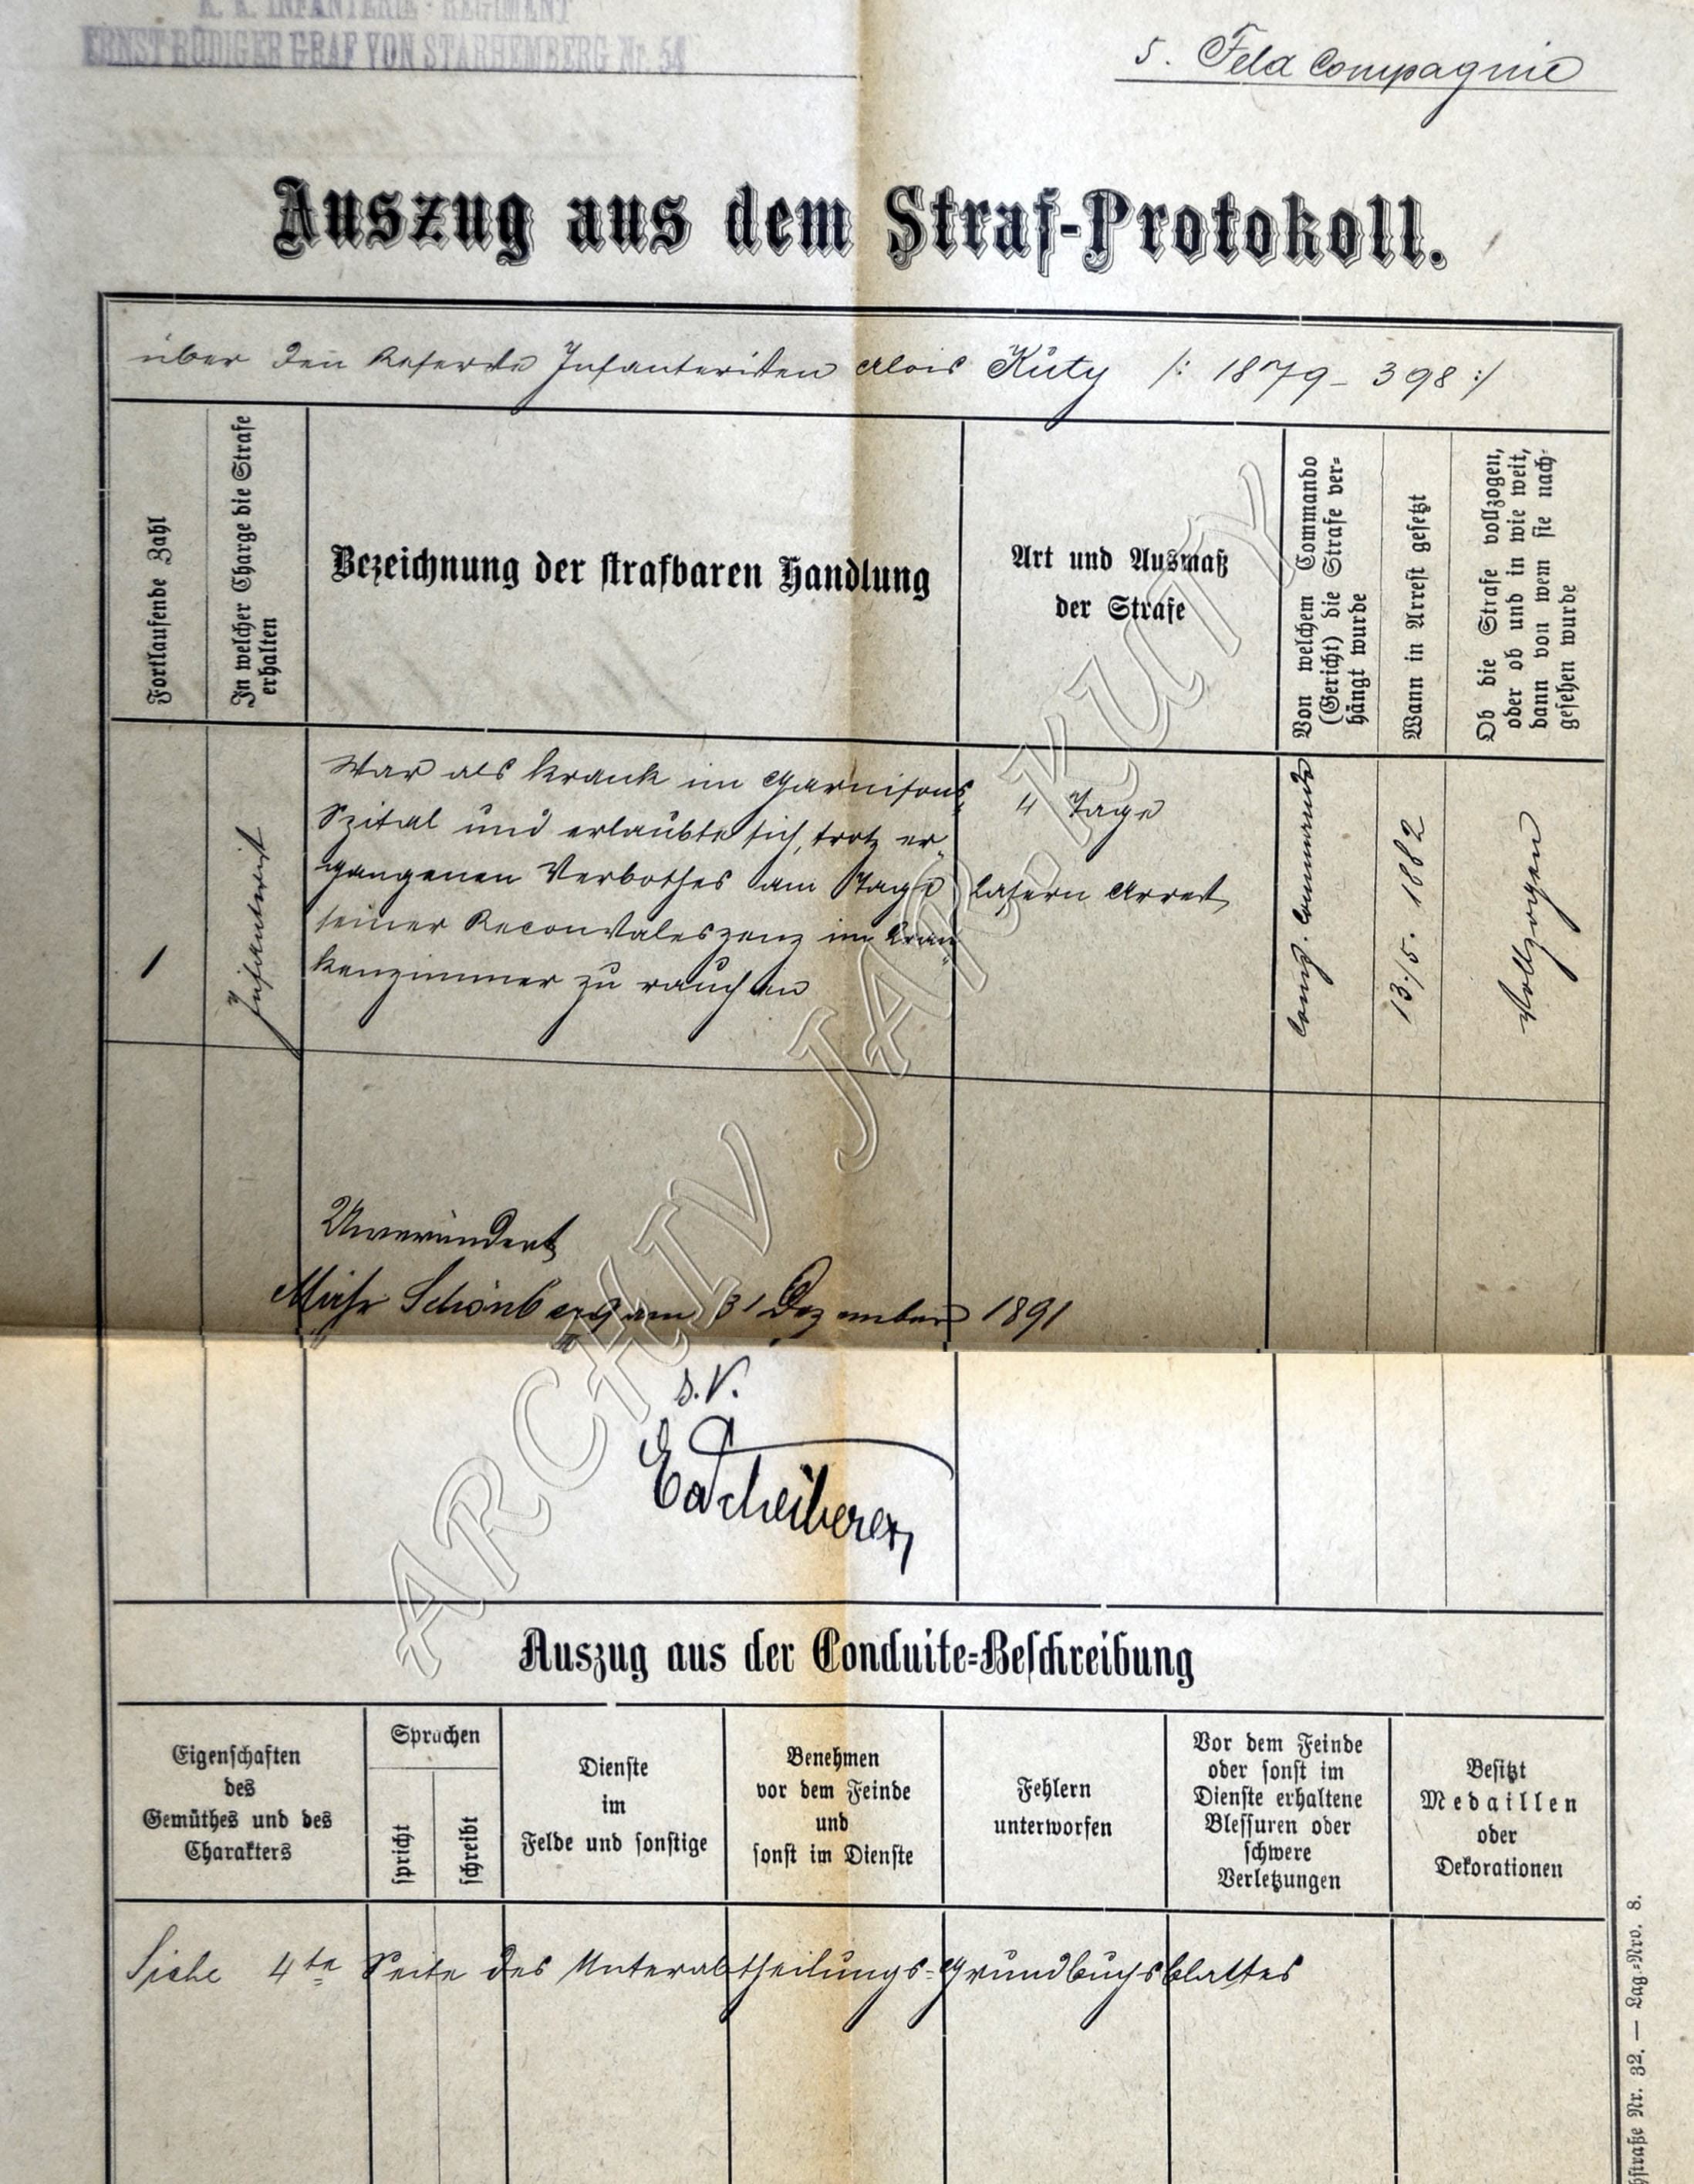 K. K. INFANTERIE-REGIMENT
ERNST RÜDIGER GRAF VON STARHEMBERG Nr. 54
5. Feld Compagnie
Auszug aus dem Straf-Protokoll.
über den Reserve Infanteristen Alois Kuty /: 1879 - 398 :/
Fortlaufende Zahl
In welcher Charge die Strafe
erhalten
Bezeichnung der strafbaren Handlung
Art und Ausmaß
der Strafe
Von welchem Commando
(Gericht) die Strafe ver-
hängt wurde
Wann in Arrest gesetzt
Ob die Strafe vollzogen,
oder ob und in wie weit,
dann von wem sie nach-
gesehen wurde
1
Infanterist
War als krank im Garnisons-
Spital und erlaubte sich, trotz er-
gangenen Verbothes am Tage
seiner Reconvaleszenz im Kran-
kenzimmer zu rauchen
4 Tage
Casern Arrest
Comp. Commando
13./5. 1882
Vollzogen
Unverändert
Mähr Schönberg am 31 Dezember 1891
Auszug aus der Conduite-Beschreibung
Eigenschaften
des
Gemüthes und des
Charakters
Sprachen
spricht
schreibt
Dienste
im
Felde und sonstige
Benehmen
vor dem Feinde
und
sonst im Dienste
Fehlern
unterworfen
Vor dem Feinde
oder sonst im
Dienste erhaltene
Blessuren oder
schwere
Verletzungen
Besitzt
Medaillen
oder
Dekorationen
Siehe 4te Seite des Unterabtheilungs-Grundbuchsblattes
straße Nr. 32. — Lag.-Nro. 8.
ARCHIV JAR. KUTÝ